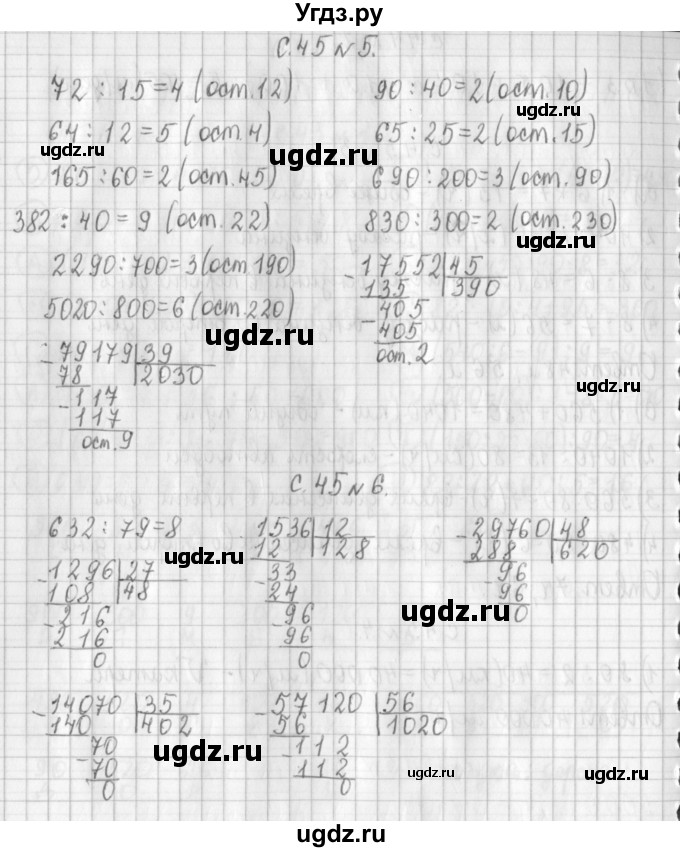 Угдз.ру
С.45 №5.
72 : 15=4 (ост.12) 90:40=2(ост.10)
64 : 12=5 (ост.4) 65:25=2(ост.15)
165:60=2(ост.45) 690:200=3(ост.90)
382 : 40 = 9 (ост. 22) 830:300=2 (ост.230)
2290:700=3(ост.190)
5020:800=6(ост.220)
- 17552 45
135 390
- 405
405
ост.2
- 79179 39
78 2030
- 117
117
ост.9
С.45 №6.
632 : 79=8
1536 12
12 128
- 33
24
- 96
96
0
- 29760 48
288 620
- 96
96
0
- 1296 27
108 48
- 216
216
0
- 14070 35
140 402
- 70
70
0
- 57120 56
56 1020
- 112
112
0
ugdz.ru
ugdz.ru
ugdz.ru
ugdz.ru
ugdz.ru
ugdz.ru
ugdz.ru
ugdz.ru
ugdz.ru
ugdz.ru
ugdz.ru
ugdz.ru